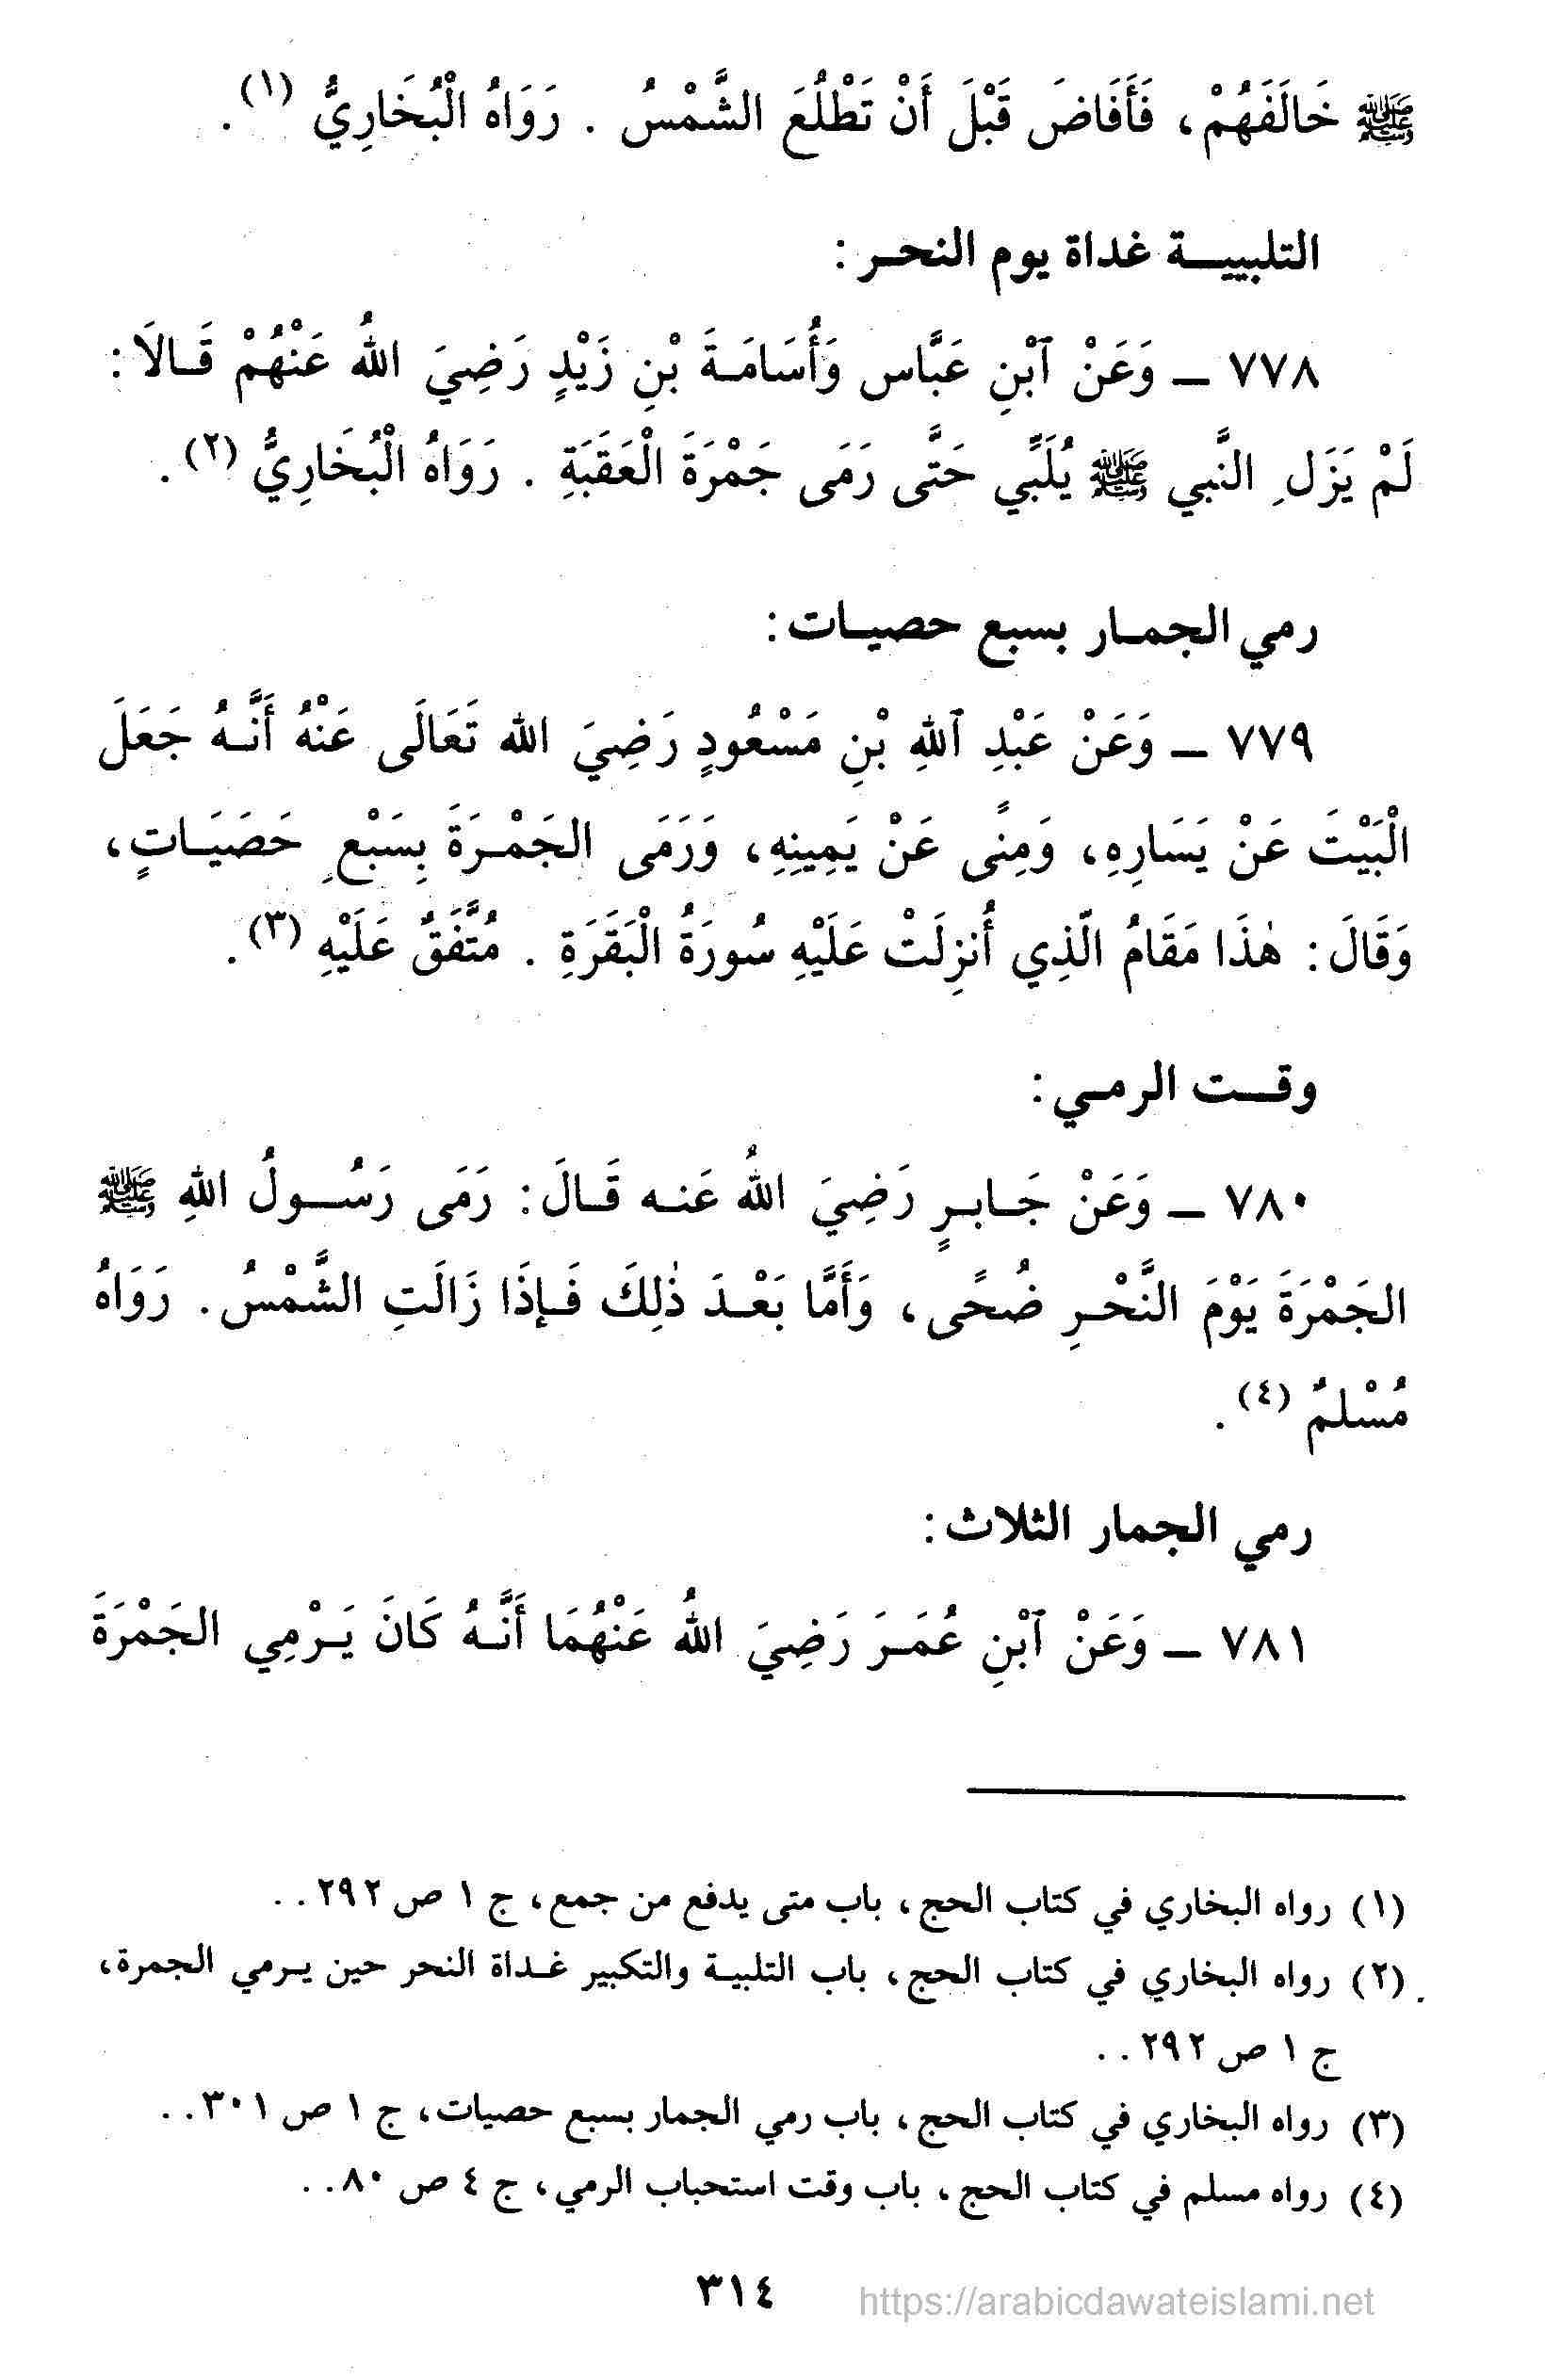 ﷺ خَالَفَهُمْ، فَأَفَاضَ قَبْلَ أَنْ تَطْلُعَ الشَّمْسُ . رَوَاهُ الْبُخَارِيُّ (١).
التلبييـــة غداة يوم النحـر :
٧٧٨ ــ وَعَنْ ٱبْنِ عَبَّاس وَأُسَامَـةَ بْنِ زَيْدٍ رَضِيَ اللهُ عَنْهُمْ قَـالَا :
لَمْ يَزَلِ النَّبي ﷺ يُلَبِّي حَتَّى رَمَى جَمْرَةَ الْعَقَبَةِ . رَوَاهُ الْبُخَارِيُّ (٢).
رمي الجمـار بسبع حصيـات :
٧٧٩ ــ وَعَنْ عَبْدِ ٱللهِ بْنِ مَسْعُودٍ رَضِيَ الله تَعَالَى عَنْهُ أَنَّـهُ جَعَلَ
الْبَيْتَ عَنْ يَسَارِهِ، وَمِنًى عَنْ يَمِينِهِ، وَرَمَى الجَمْـرَةَ بِسَبْعِ حَصَيَـاتٍ،
وَقَالَ : هٰذَا مَقَامُ الَّذِي أُنزِلَتْ عَلَيْهِ سُورَةُ الْبَقَرَةِ . مُتَّفَقٌ عَلَيْهِ (٣).
وقـــت الرمـي :
٧٨٠ ــ وَعَنْ جَـابـرٍ رَضِيَ اللهُ عَنـه قَـالَ : رَمَى رَسُـــولُ اللهِ ﷺ
الجَمْرَةَ يَوْمَ النَّحْـرِ ضُحًى، وَأَمَّا بَعْـدَ ذٰلِكَ فَـإذَا زَالَتِ الشَّمْسُ . رَوَاهُ
مُسْلمٌ (٤).
رمي الجمار الثلاث :
٧٨١ ــ وَعَنْ ٱبْنِ عُمَـرَ رَضِيَ اللهُ عَنْهُمَا أَنَّـهُ كَانَ يَـرْمِي الجَمْرَةَ
(١) رواه البخاري في كتاب الحج، باب متى يدفع من جمع، ج ١ ص ٢٩٢ . .
(٢) رواه البخاري في كتاب الحج، باب التلبيـة والتكبير غـداة النحر حين يـرمي الجمرة،
ج ١ ص ٢٩٢ . .
(٣) رواه البخاري في كتاب الحج، باب رمي الجمار بسبع حصيات، ج ١ ص ٣٠١ . .
(٤) رواه مسلم في كتاب الحج، باب وقت استحباب الرمي، ج ٤ ص ٨٠ . .
٣١٤
https://arabicdawateislami.net